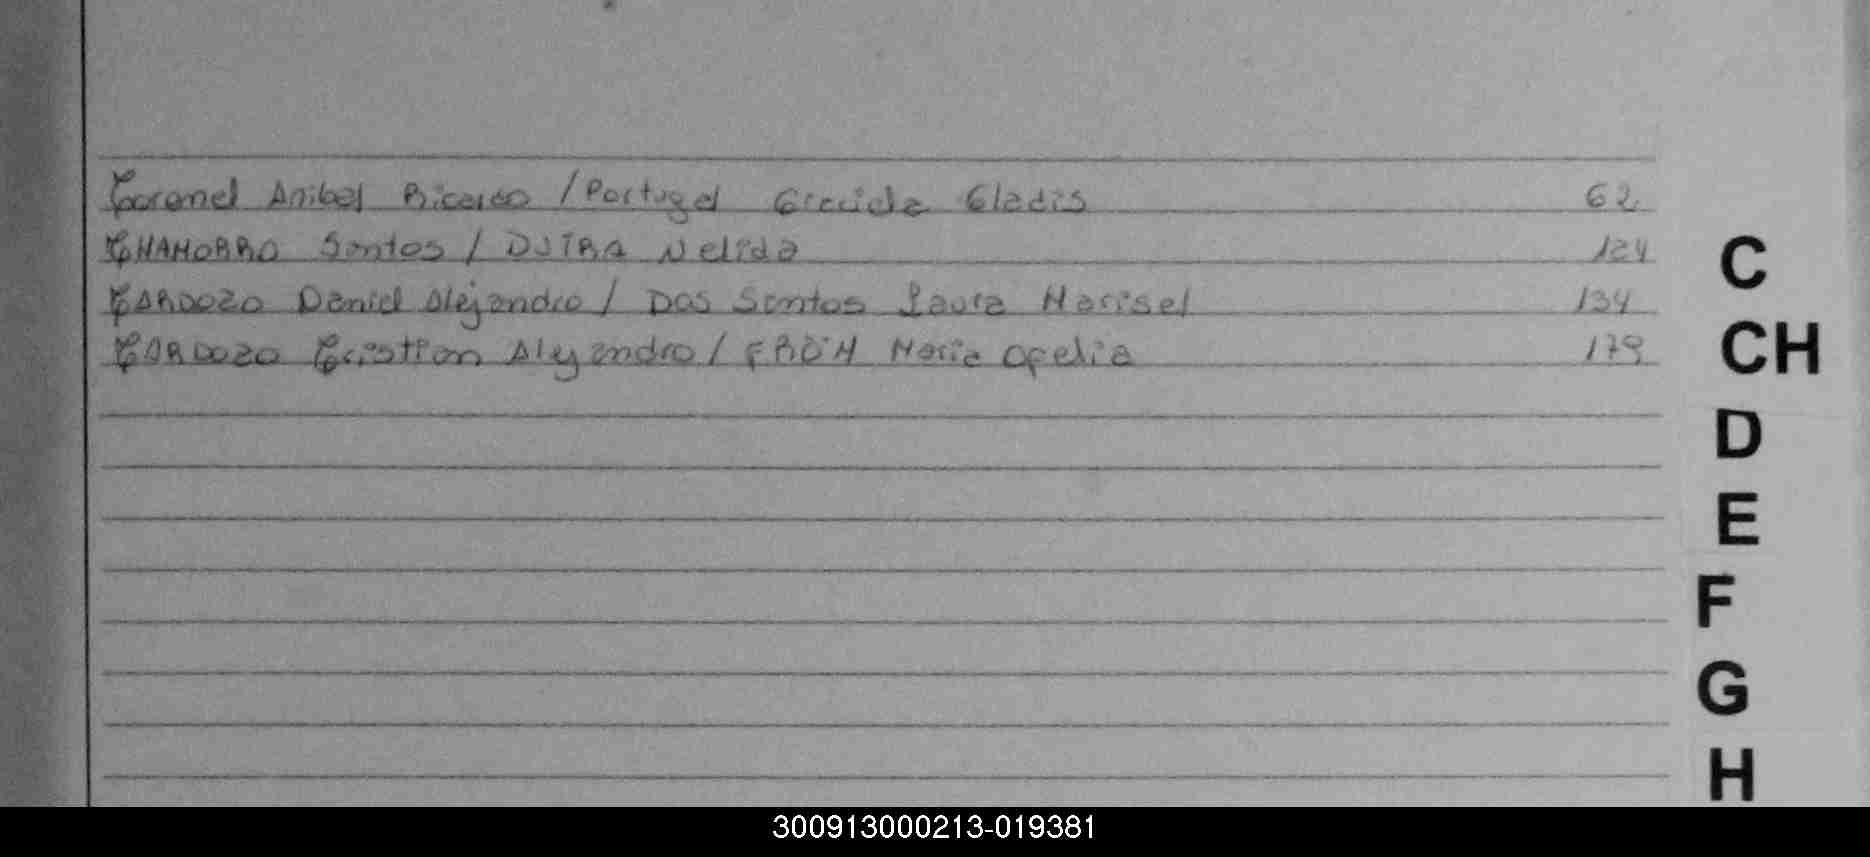 Coronel Anibal Ricardo / Portugal Graciela Gladis 62
CHAMORRO Santos / DUTRA Nelida 124
CARDOZO Daniel Alejandro / Dos Santos Laura Marisel 134
CARDOZO Cristian Alejandro / Maria Ofelia 179
C
CH
D
E
F
G
H
300913000213-019381